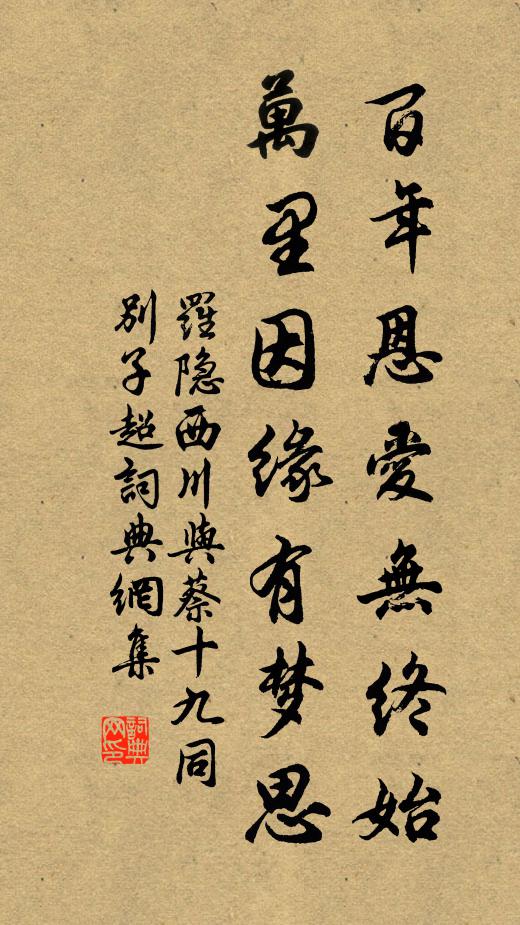 百年恩愛無終始
萬里因緣有梦思
羅隐西川與蔡十九同
別子超詞典網集
詞典网印